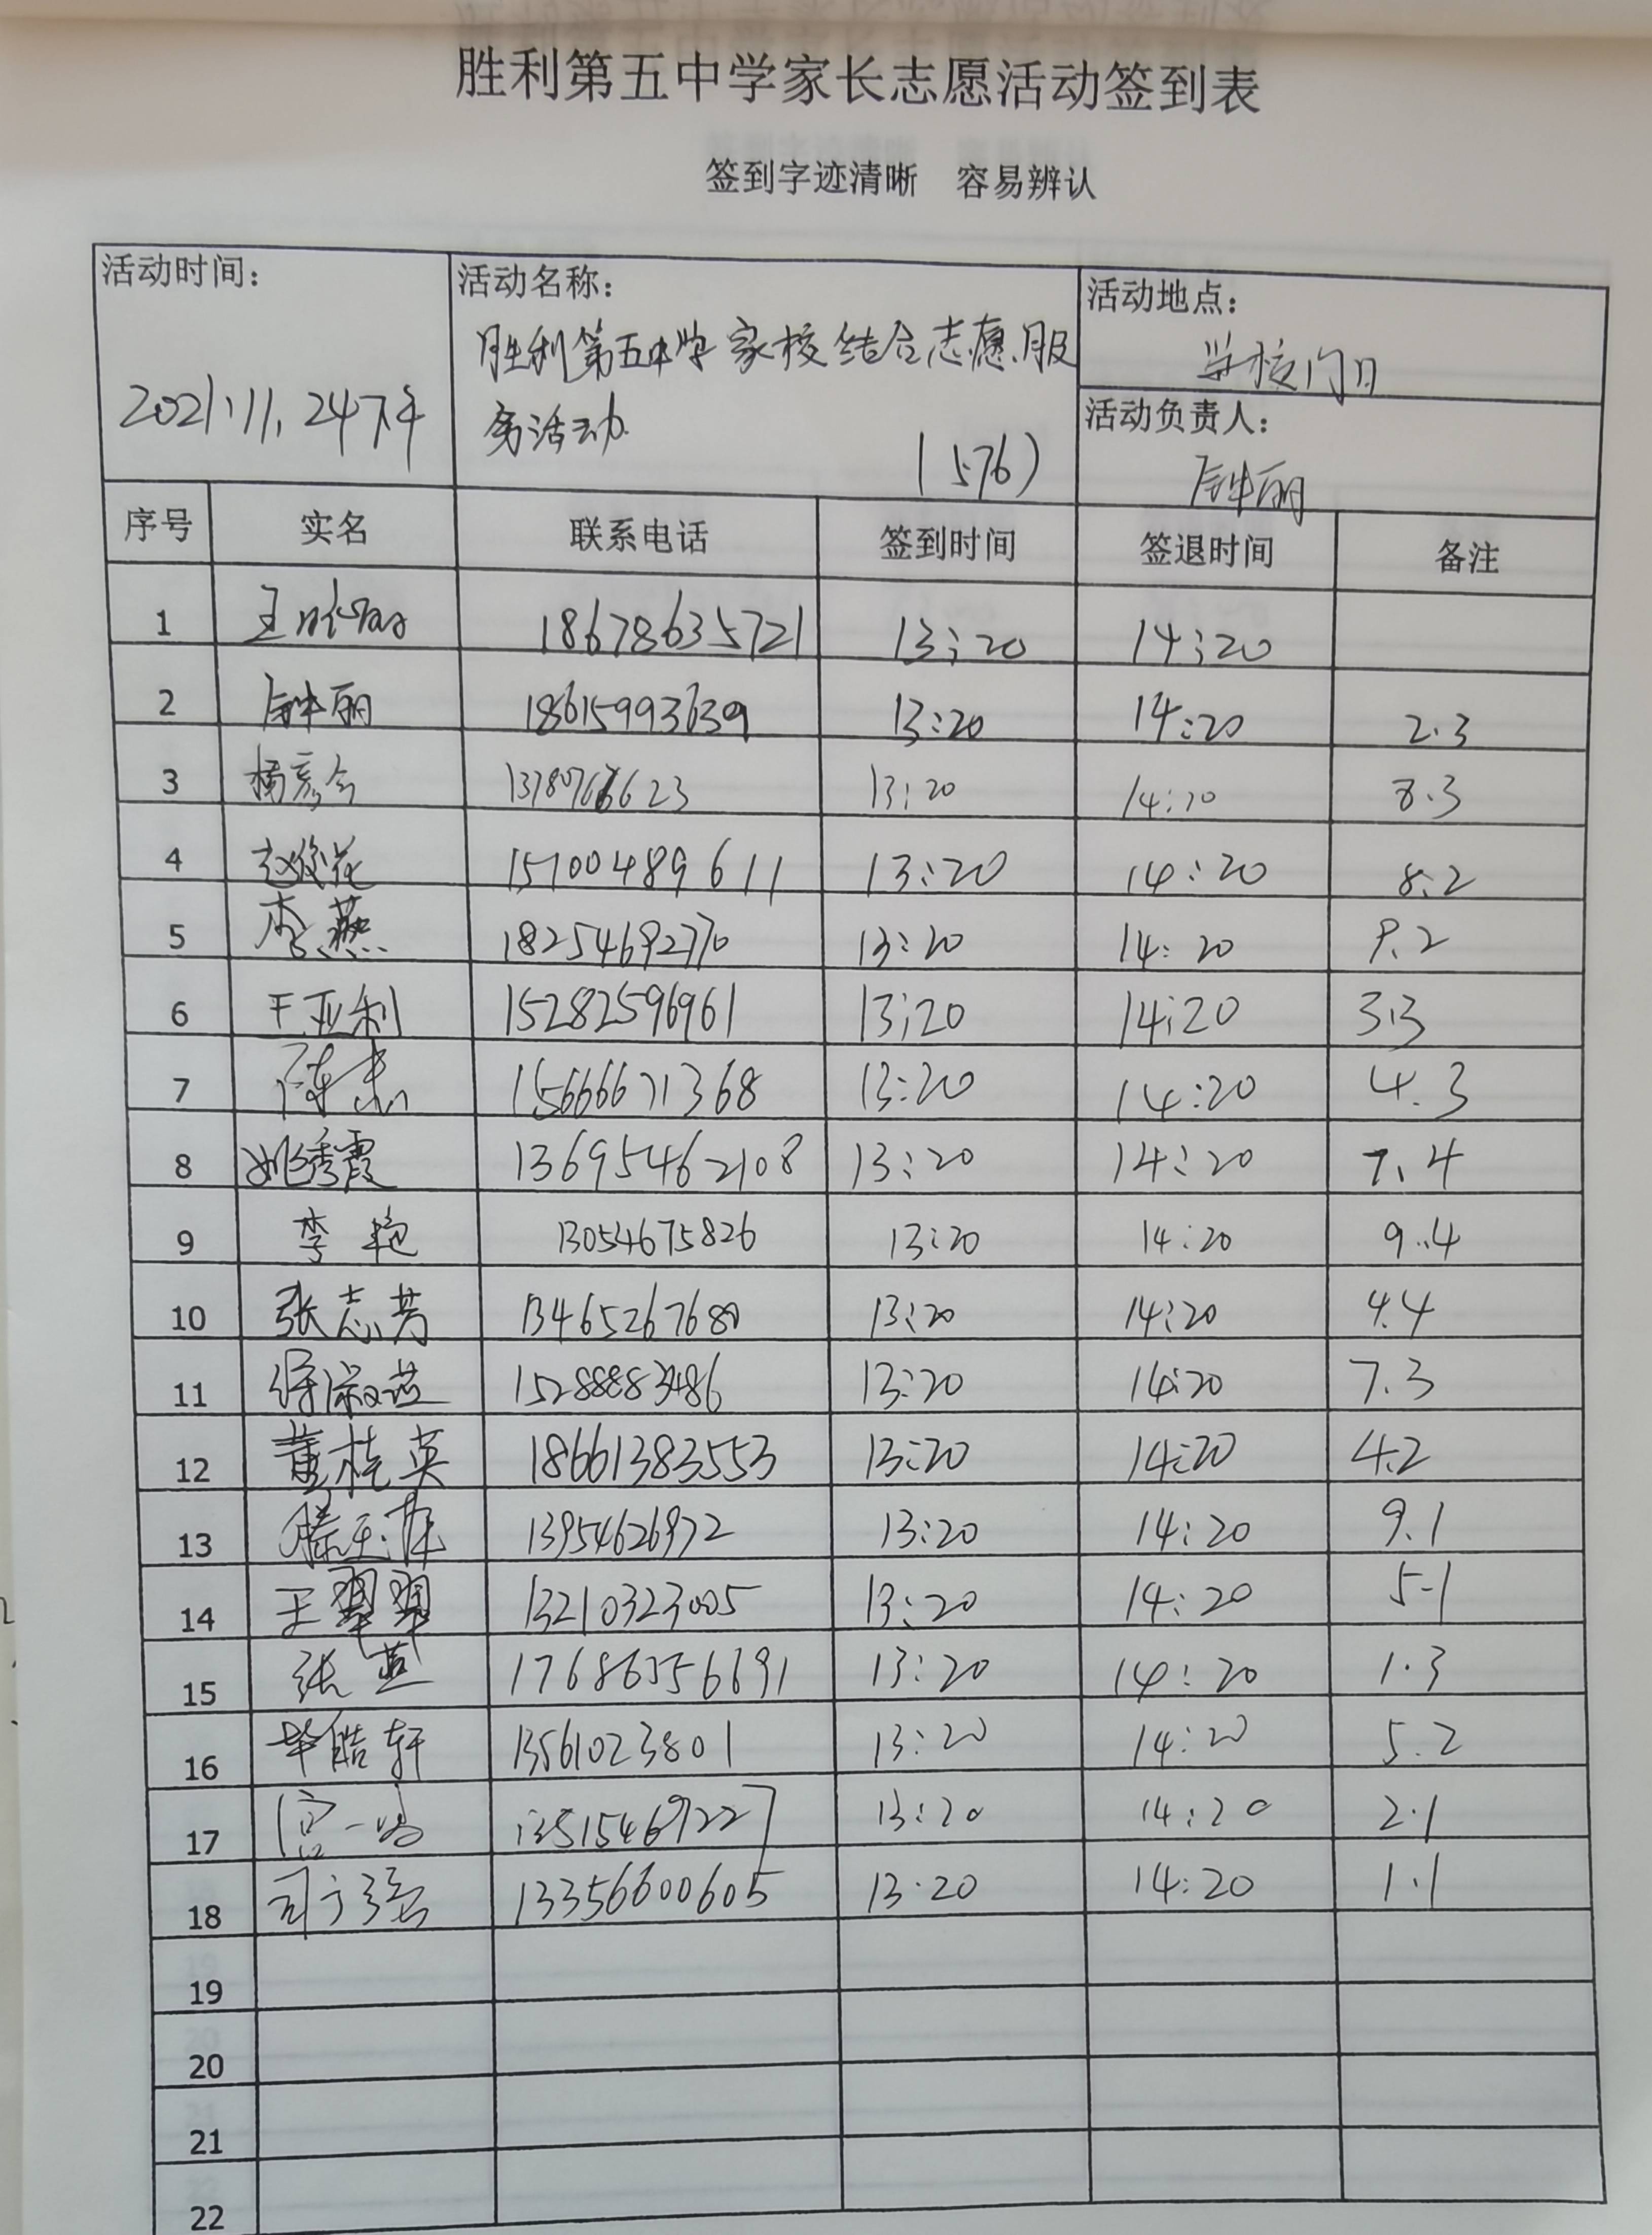 胜利第五中学家长志愿活动签到表
签到字迹清晰 容易辨认
活动时间：
2021.11.24下午
活动名称：
胜利第五中学家校结合志愿服
务活动
(576)
活动地点：
学校门口
活动负责人：
钟丽
序号 实名 联系电话 签到时间 签退时间 备注
1 王 18678635721 13:20 14:20
2 钟丽 18615993639 13:20 14:20 2.3
3 13:20 14:20 8.3
4 赵俊花 15700489611 13:20 14:20 8.2
5 李燕 18254692770 13:20 14:20 9.2
6 王亚利 15282596961 13:20 14:20 3.3
7 陈杰 15666671368 13:20 14:20 4.3
8 姚秀霞 13695462108 13:20 14:20 7.4
9 李艳 13054675826 13:20 14:20 9.4
10 张志芳 13465267680 13:20 14:20 4.4
11 13:20 14:20 7.3
12 董桂英 18661383553 13:20 14:20 4.2
13 13954626972 13:20 14:20 9.1
14 王翠翠 13210323005 13:20 14:20 5-1
15 张蓝 13:20 14:20 1.3
16 毕皓轩 13561023801 13:20 14:20 5.2
17 宫一鸣 13515469227 13:20 14:20 2.1
18 司方强 13356600605 13.20 14:20 1.1
19
20
21
22